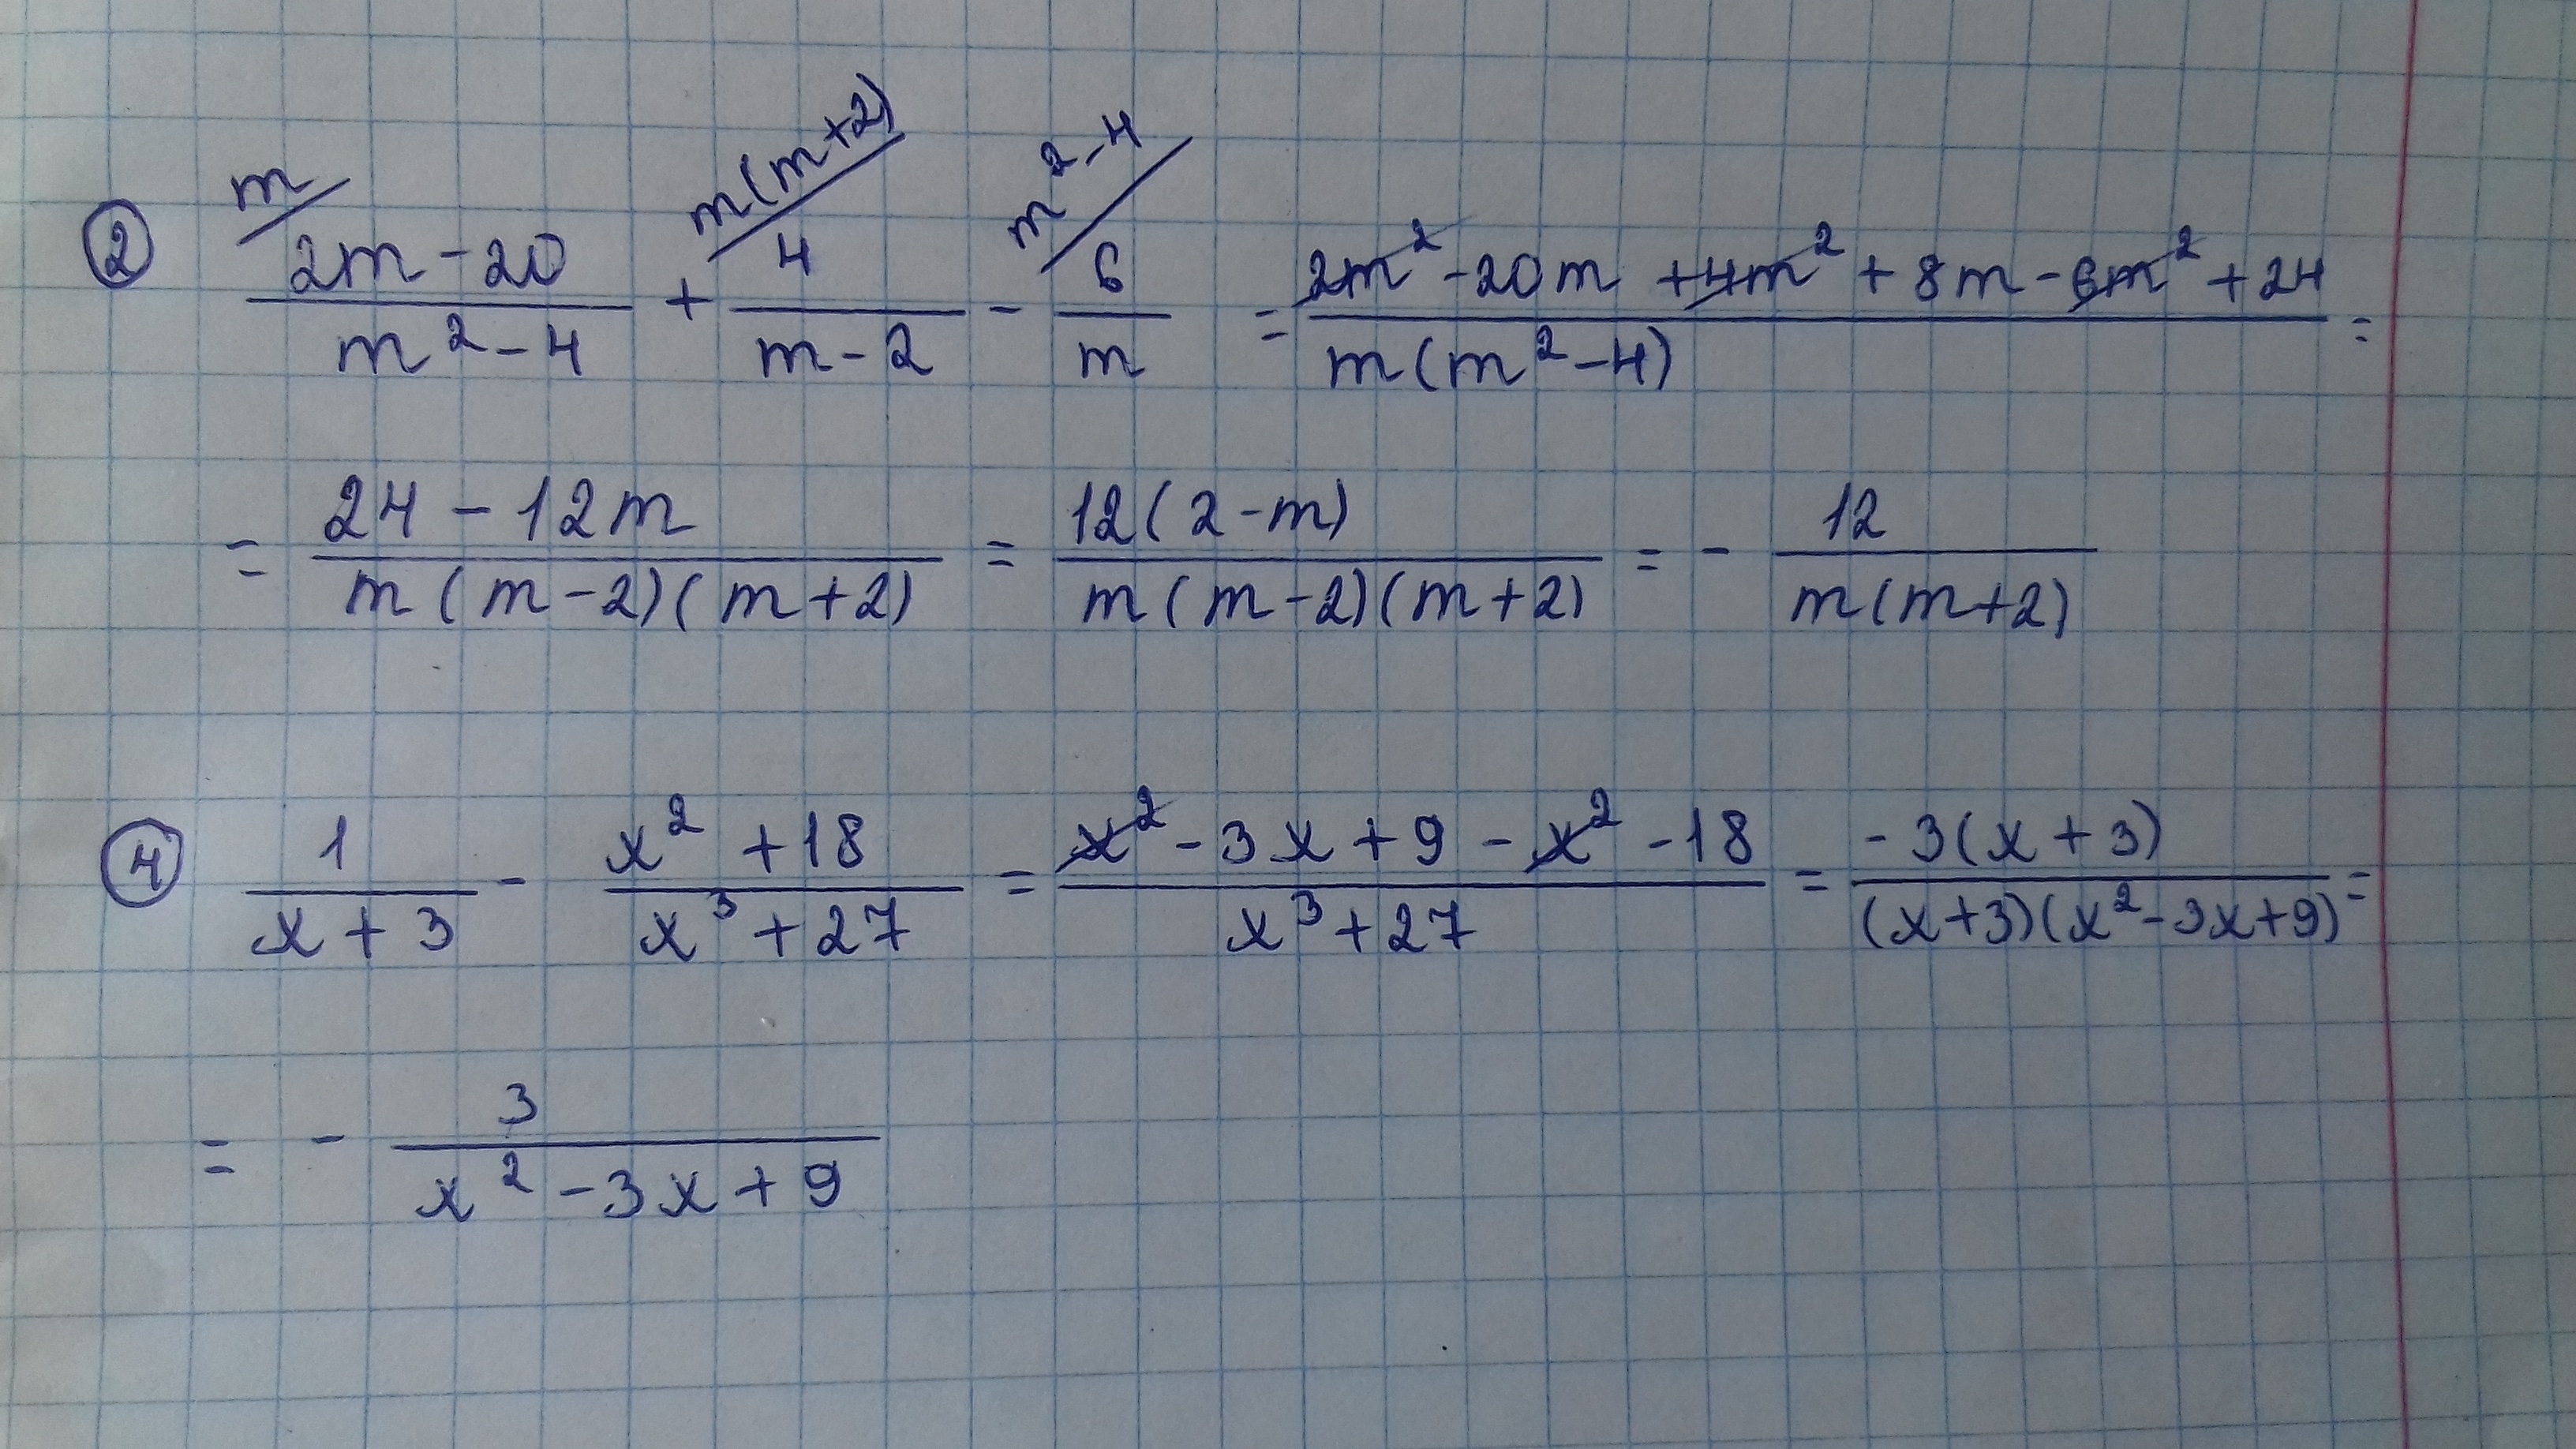 m/ m(m+2)/ m²-4/
② (2m-20)/(m²-4) + 4/(m-2) - 6/m = (2m²-20m+4m²+8m-6m²+24)/(m(m²-4)) =
= (24-12m)/(m(m-2)(m+2)) = 12(2-m)/(m(m-2)(m+2)) = - 12/(m(m+2))
④ 1/(x+3) - (x²+18)/(x³+27) = (x²-3x+9-x²-18)/(x³+27) = -3(x+3)/((x+3)(x²-3x+9)) =
= - 3/(x²-3x+9)